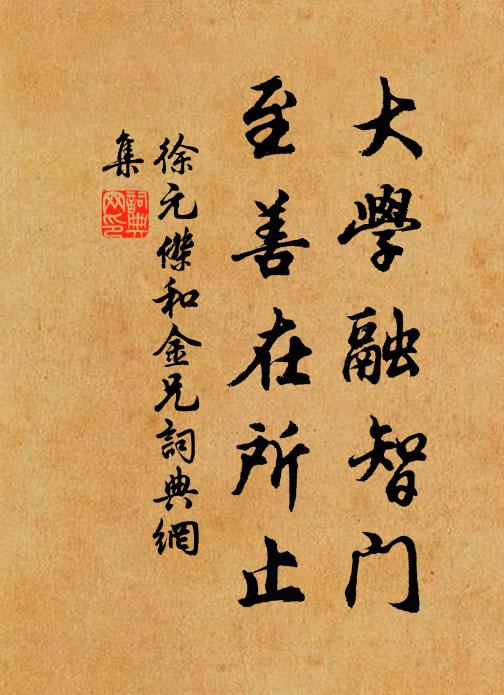 大學融智門
至善在所止
徐元傑和金兄詞典網
集
詞典
网印